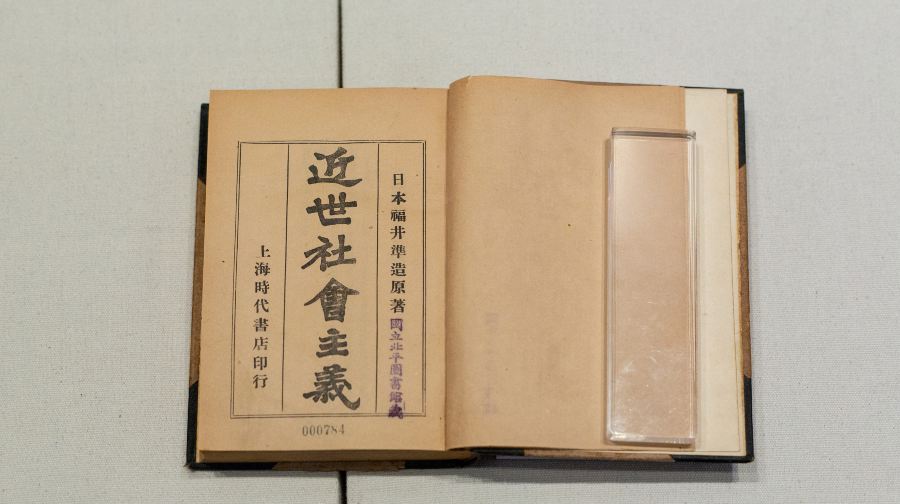 日本福井準造原著
國立北平圖書館藏
近世社會主義
上海時代書店印行
000784